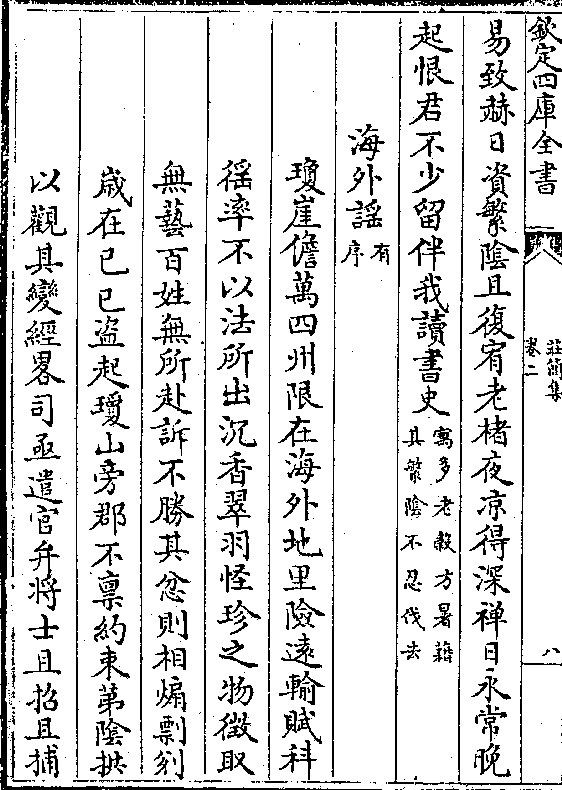 欽定四庫全書
莊簡集
卷二
八
易致赫日資繁陰且復宥老楮夜凉得深禪日永常晚
起恨君不少留伴我讀書史寓多老榖方暑藉其繁陰不忍伐去
海外謡有序
瓊崖儋萬四州限在海外地里險遠輸賦科
徭率不以法所出沉香翠羽怪珍之物徴取
無藝百姓無所赴訴不勝其忿則相煽剽刼
歳在已巳盜起瓊山旁郡不禀約束第陰拱
以觀其變經畧司亟遣官弁將士且招且捕